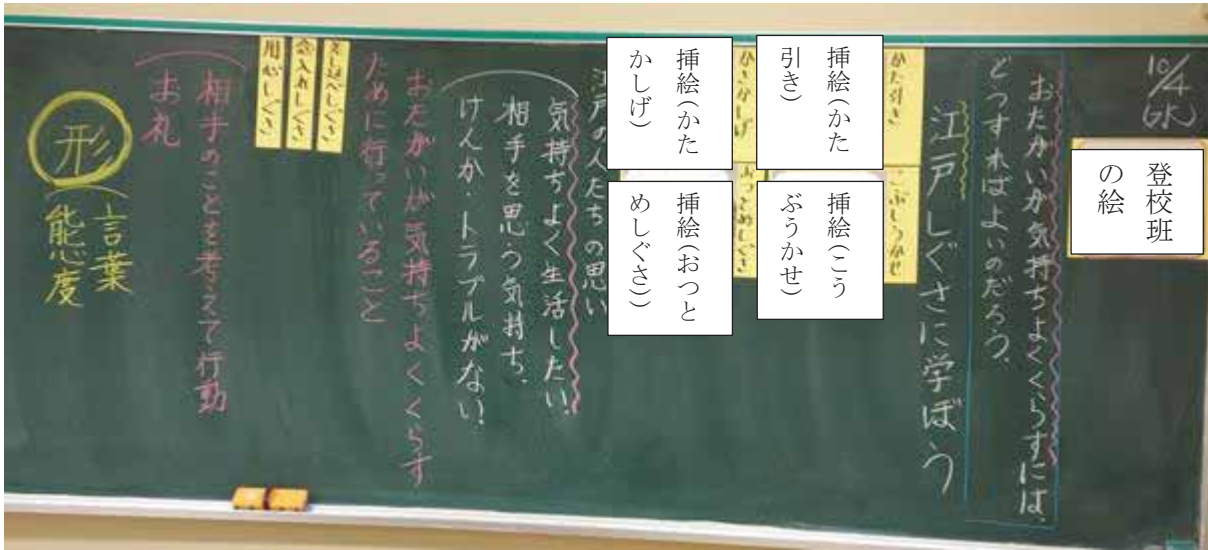 10/4
(水)
登校班
の絵
おたがいが気持ちよくくらすには、
どうすればよいのだろう。
江戸しぐさに学ぼう
かた引き
こぶしうかせ
挿絵(かた
引き)
挿絵(こう
ぶうかせ)
かさかしげ
おつとめしぐさ
挿絵(かた
かしげ)
挿絵(おつと
めしぐさ)
江戸の人たちの思い
気持ちよく生活したい。
相手を思う気持ち、
けんか・トラブルがない。
おたがいが気持ちよくくらす
ために行っていること
念入れしぐさ
用心しぐさ
相手のことを考えて行動
お礼
形
言葉
態度